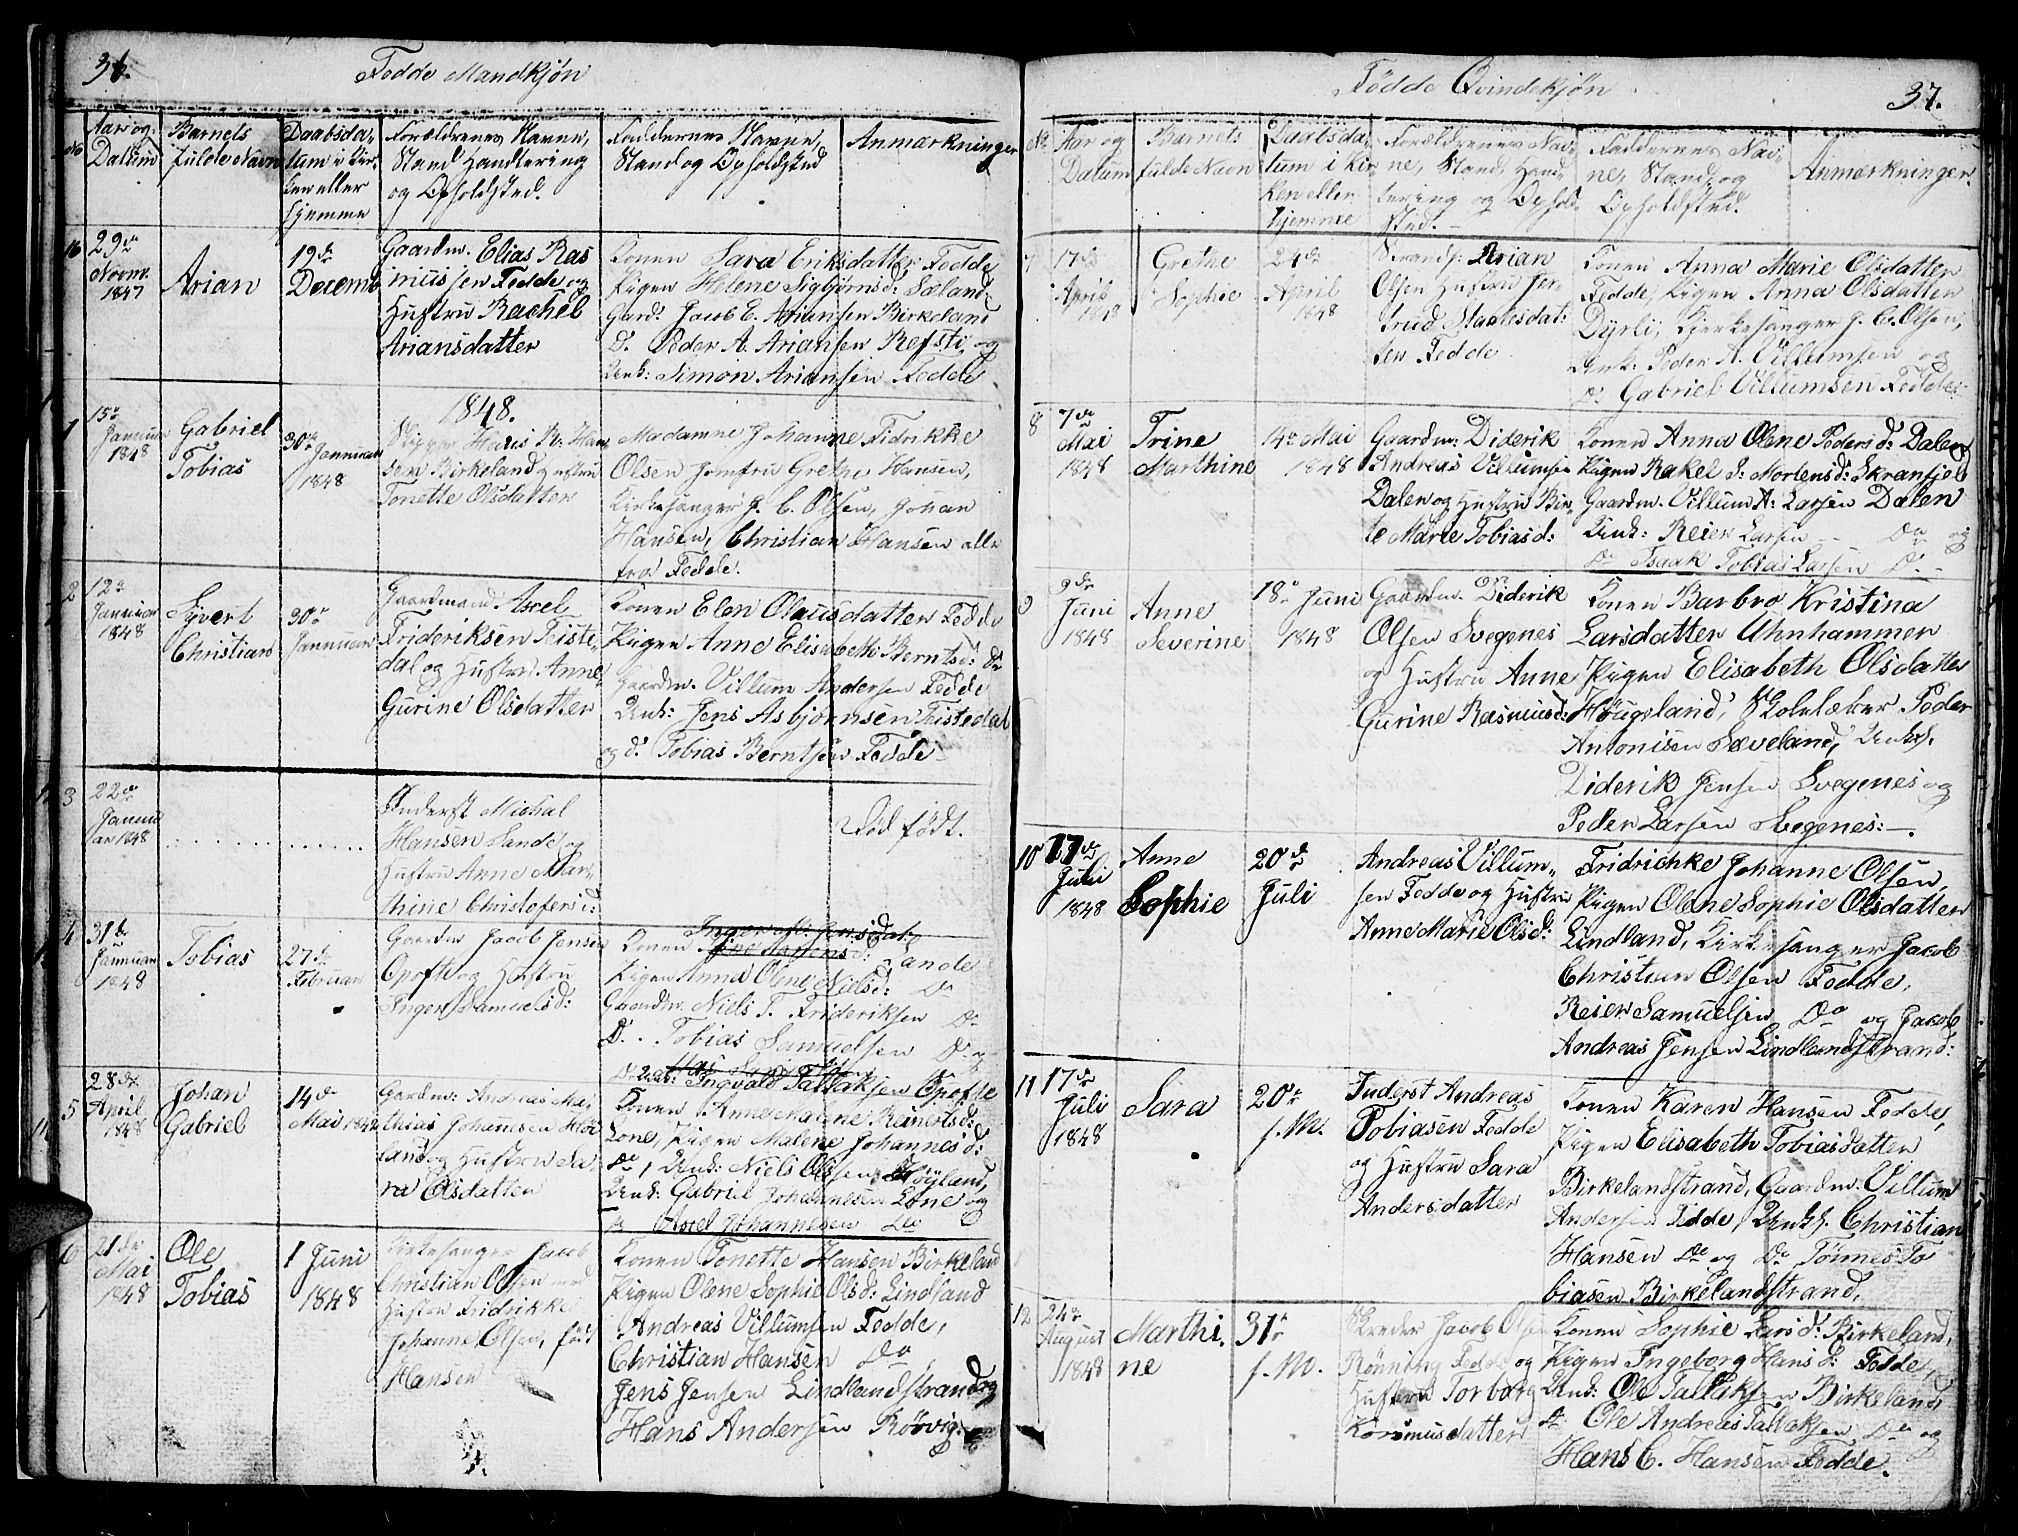 36.
Fødde Mandkjøn
No
Aar og
Datum
Barnets
fulde Navn
Daabsda-
tum i Kir-
ken eller
hjemme
Forældrenes Navne,
Stand Handtering
og Opholdsted.
Faddernes Navne,
Stand og Opholdsted
Anmærkninger
16
29de
Novm.
1847
Arian
19de
Decemb
Gaardm. Elias Ras
mussen Fedde og
Hustru Rachel
Ariansdatter
Konen Sara Eriksdatter, Fedde
Pigen Helene Sigbjørnsd: Sæland
Gard: Jacob E. Ariansen Birkeland
Do Peder A. Ariansen Refsti, og
Unk: Simon Ariansen Fedde
1848.
1
15de
Januar
1848
Gabriel
Tobias
30te Januar
1848
Skipper Hans R: Han
sen Birkeland og Hustru
Tonette Olsdatter
Madamme Johanne Fidrikke
Olsen Jomfru Grethe Hansen,
Kirkesanger J. C. Olsen, Johan
Hansen, Christian Hansen alle
fra Fedde.
2
12te
Januar
1848
Syvert
Christian
30te
Januar
Gaardmand Axel
Frideriksen Teiste-
dal og Hustru Anne
Gurine Olsdatter
Konen Elen Olausdatter Fedde
Pigen Anne Elisabeth Berntsd: Do
Gaardm. Villum Andersen Fedde
Unk: Jens Asbjørnsen Teistedal
og do Tobias Berntsen Fedde
3
22de
Janu
ar 1848
Inderst Michal
Hansen Sande og
Hustru Anne Mar-
thine Christofersd:
Død født.
4
31te
Januar
1848
Tobias
27de
Februar
Gaardm Jacob Jensen
Opofte og Hustru
Inger Samuelsd:
Konen Sande
Pigen Anna Olene Nielsd: Do
Gaardm. Niels T. Frideriksen Do
D. Tobias Samuelsen Do og
Do Unk: Ingvald Tallaksen Opofte
5
28de
April
1848
Johan
Gabriel
14de
Mai 1848
Gardm: Andreas Ma-
thias Johannesen Høi
land og Hustru Sa-
ra Olsdatter
Konen Anne Malene Reinertsd:
Lone, Pigen Malene Johannesd:
Do, Unk: Niels Olsen Høyland,
Unk: Gabriel Johannesen Lone og
do Axel Johannesen Do
6
21de
Mai
1848
Ole
Tobias
1 Juni
1848
Kirkesanger Jacob
Christian Olsen med
Hustru Fridrikke
Johanne Olsen, fød
Hansen
Konen Tonette Hansen Birkeland
Pigen Olene Sophie Olsd: Lindland
Andreas Villumsen Fedde,
Christian Hansen Do,
Jens Jensen Lindlandstrand og
Hans Andersen Røvig.
Fødde Qvindekjøn
37.
No
Aar og
Datum
Barnets
fulde Navn
Daabsda-
tum i Kir-
ken eller
hjemme
Forældrenes Nav-
ne, Stand, Hand-
tering og Ophold-
sted.
Faddernes Nav-
ne, Stand og
Opholdsted.
Anmærkninger.
7
17de
April
1848
Grethe
Sophie
24de
April
1848
Strands: Arian
Olsen Hustru Jer-
trud Staalesdat-
ter Fedde
Konen Anna Marie Olsdatter
Fedde, Pigen Anna Olsdatter
Dyrli, Kirkesanger J. C. Olsen,
Unk: Peder A. Villumsen og
Do Gabriel Villumsen Fedde:
8
7de
Mai
1848
Trine
Marthine
14de Mai
1848
Gaardm: Diderik
Andreas Villumsen
Dalen og Hustru Bir-
te Marie Tobiasd:
Konen Anna Olene Pedersd: Dalen
Pigen Rakel S: Mortensd: Skranfjel
Gaardm. Villum A: Larsen Dalen
Unk: Reier Larsen - Do og
Do Isaak Tobias Larsen Do -
9
9de
Juni
1848
Anne
Severine
18de Juni
1848
Gaardm. Diderik
Olsen Svegenes
og Hustru Anne
Gurine Rasmusd:
Konen Barbro Kristina
Larsdatter Uhnhammer
Pigen Elisabeth Olsdatter
Høugeland, Skolelærer Peder
Antonisen Sæveland, Unk.
Diderik Jensen Svegenes og
Peder Larsen Svegenes: -.
10
17de
Juli
1848
Anne
Sophie
20de
Juli
Andreas Villum-
sen Fedde og Hustru
Anne Marie Olsd:
Fridrichke Johanne Olsen,
Pigen Olene Sophie Olsdatter
Lindland, Kirkesanger Jacob
Christian Olsen Fedde,
Reier Samuelsen Do og Jakob
Andreas Jensen Lindlandstrand:
11
17de
Juli
1848
Sara
20de
f. M.
Inderst Andreas
Tobiasen Fedde
og Hustru Sara
Andersdatter
Konen Karen Hansen Fedde,
Pigen Elisabeth Tobiasdatter
Birkelandstrand, Gaardm: Villum
Andersen Fedde, Unk. Christian
Hansen Do og Do Tønnes To
biasen Birkelandstrand,
12
24de
August
1848
Marthi-
ne
31te
f. M.
Skreder Jacob Olsen
Rønning Fedde og
Hustru Torborg
Rasmusdatter
Konen Sophie Larsd: Birkeland,
Pigen Ingeborg Hansd: Fedde,
Unk: Ole Tallaksen Birkeland
do Ole Andreas Tallaksen Do og
Hans C. Hansen Fedde.